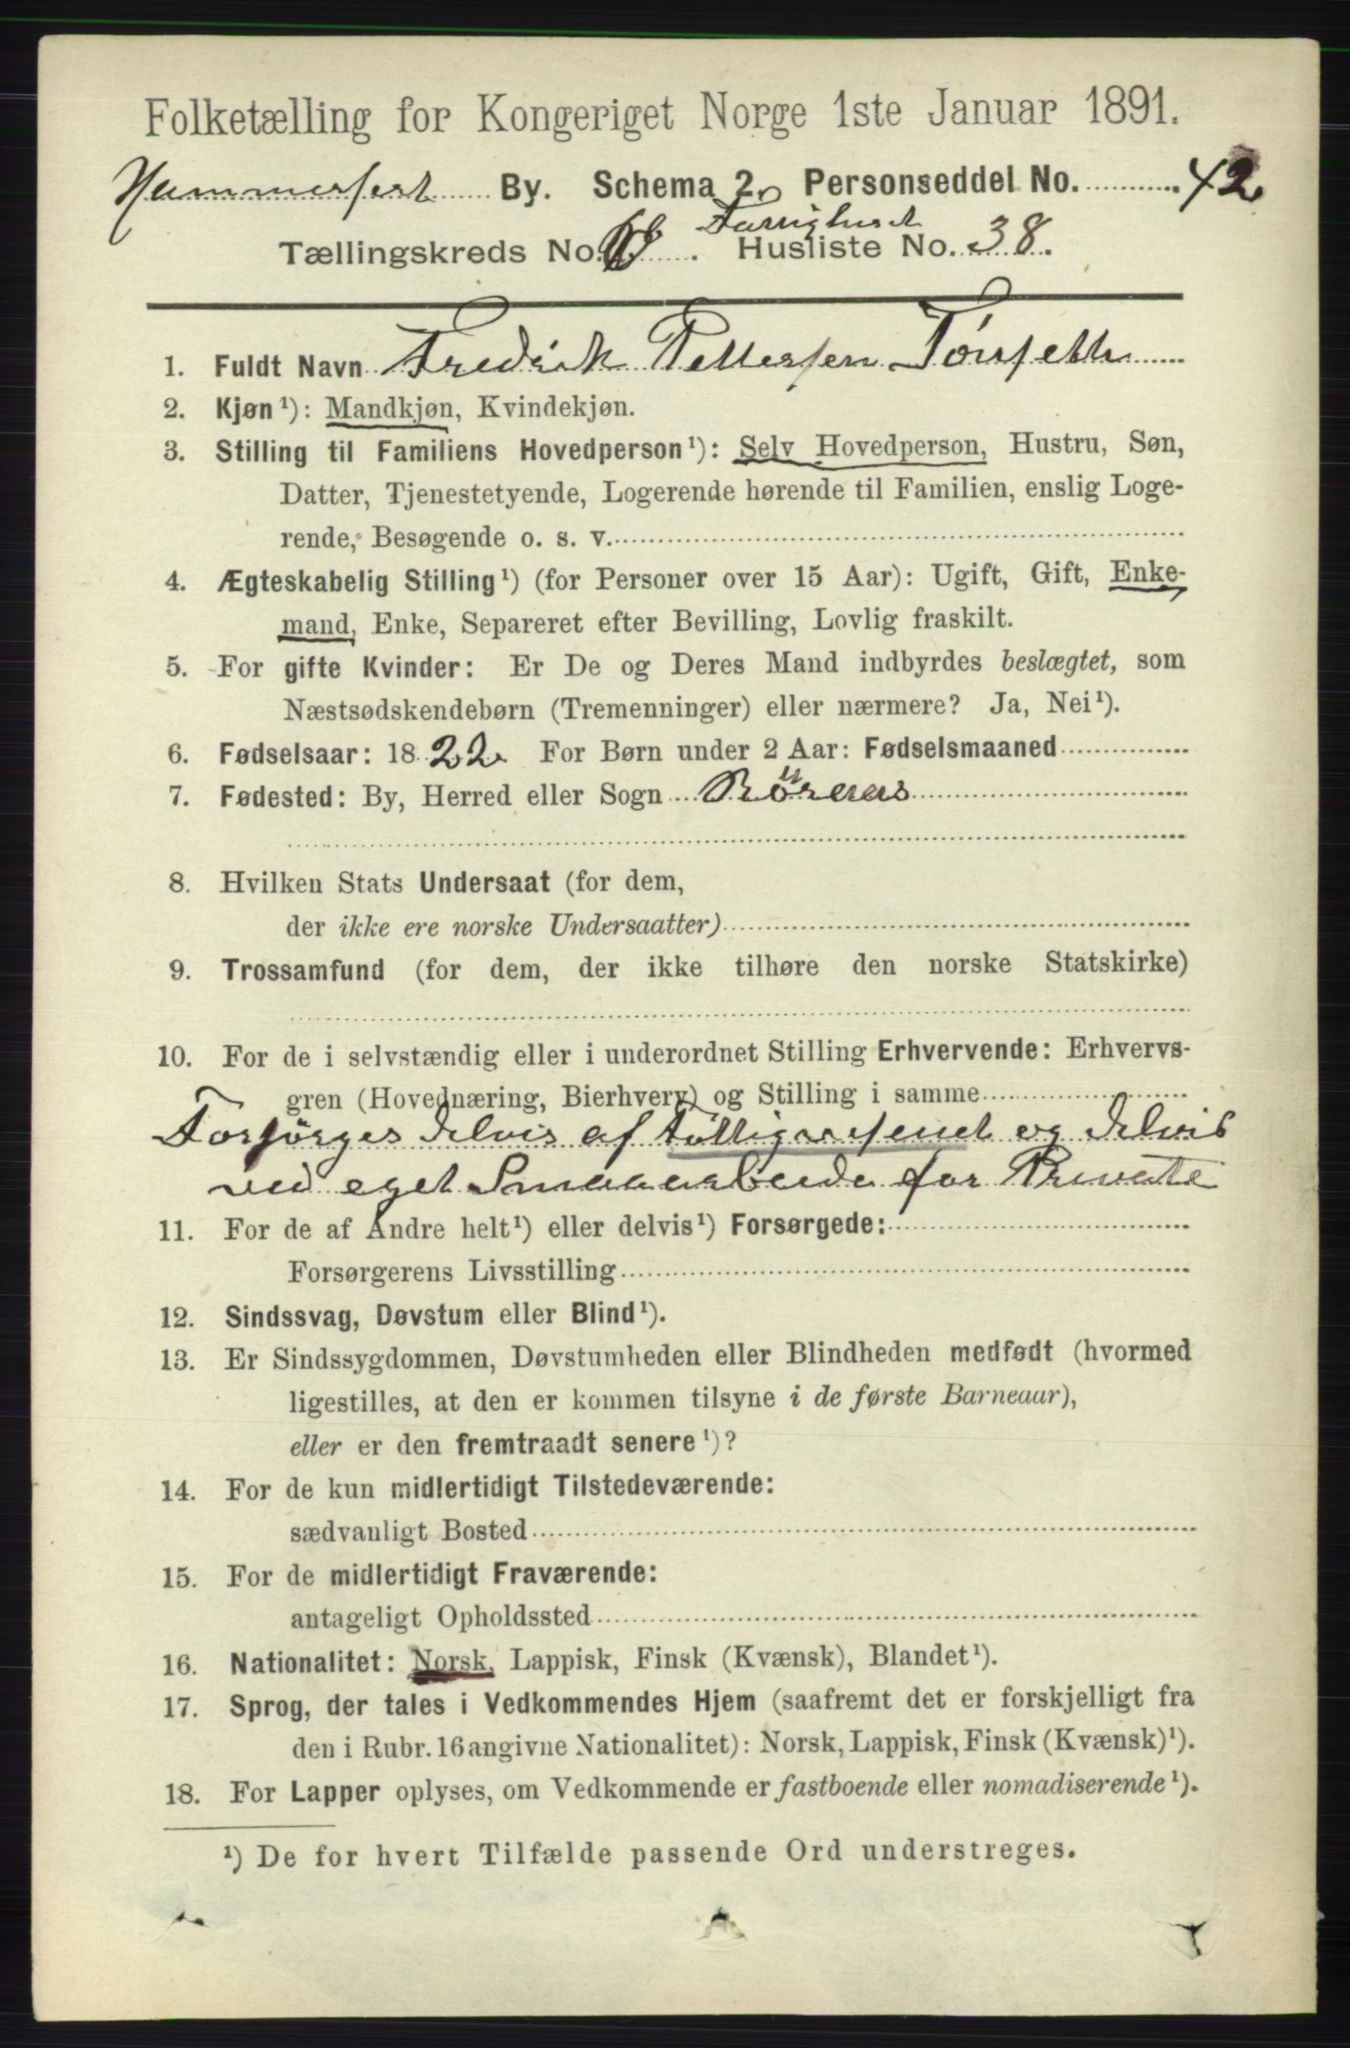 Folketælling for Kongeriget Norge 1ste Januar 1891.
Hammerfest By. Schema 2. Personseddel No. 42
Fattighuset
Tællingskreds No. Husliste No. 38.
1. Fuldt Navn Fredrik Pettersen Tønseth
2. Kjøn¹): Mandkjøn, Kvindekjøn.
3. Stilling til Familiens Hovedperson¹): Selv Hovedperson, Hustru, Søn,
Datter, Tjenestetyende, Logerende hørende til Familien, enslig Loge-
rende, Besøgende o. s. v.
4. Ægteskabelig Stilling¹) (for Personer over 15 Aar): Ugift, Gift, Enke-
mand, Enke, Separeret efter Bevilling, Lovlig fraskilt.
5. For gifte Kvinder: Er De og Deres Mand indbyrdes beslægtet, som
Næstsødskendebørn (Tremenninger) eller nærmere? Ja, Nei¹).
6. Fødselsaar: 1822 For Børn under 2 Aar: Fødselsmaaned
7. Fødested: By, Herred eller Sogn Röraas
8. Hvilken Stats Undersaat (for dem,
der ikke ere norske Undersaatter)
9. Trossamfund (for dem, der ikke tilhøre den norske Statskirke)
10. For de i selvstændig eller i underordnet Stilling Erhvervende: Erhvervs-
gren (Hovednæring, Bierhverv) og Stilling i samme
Forsørges delvis af Fattigvesenet og delvis
ved eget Smaaarbeide for Private
11. For de af Andre helt¹) eller delvis¹) Forsørgede:
Forsørgerens Livsstilling
12. Sindssvag, Døvstum eller Blind¹).
13. Er Sindssygdommen, Døvstumheden eller Blindheden medfødt (hvormed
ligestilles, at den er kommen tilsyne i de første Barneaar),
eller er den fremtraadt senere¹)?
14. For de kun midlertidigt Tilstedeværende:
sædvanligt Bosted
15. For de midlertidigt Fraværende:
antageligt Opholdssted
16. Nationalitet: Norsk, Lappisk, Finsk (Kvænsk), Blandet¹).
17. Sprog, der tales i Vedkommendes Hjem (saafremt det er forskjelligt fra
den i Rubr. 16 angivne Nationalitet): Norsk, Lappisk, Finsk (Kvænsk)¹).
18. For Lapper oplyses, om Vedkommende er fastboende eller nomadiserende¹).
¹) De for hvert Tilfælde passende Ord understreges.